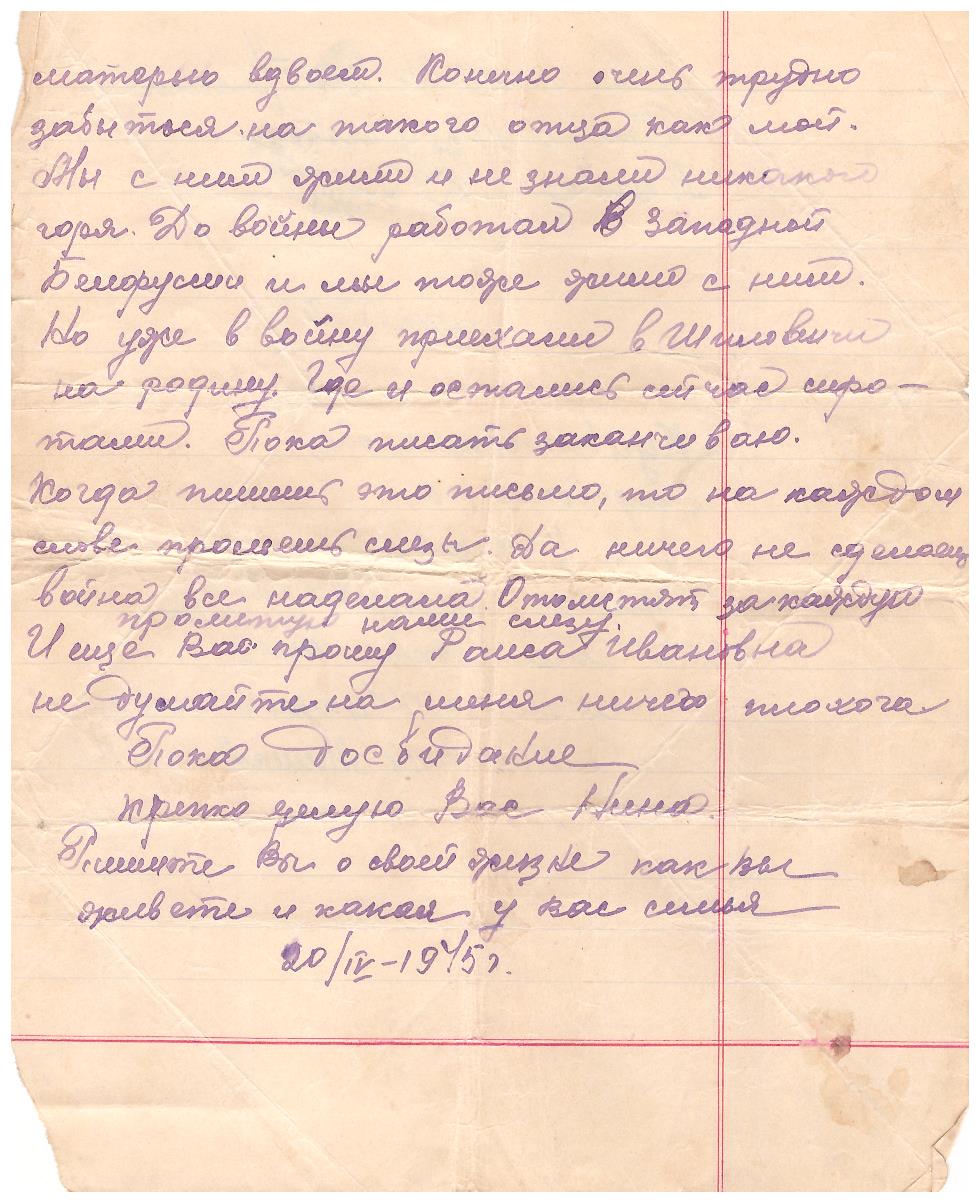 матерью вдвоем. Конечно очень трудно
забыться на такого отца как мой.
Мы с ним жили и не знали никакого
горя. До войны работал в Западной
Белоруссии и мы тоже жили с ним.
Но уже в войну приехали в Шиловичи
на родину. Где и остались сейчас сиро-
тами. Пока писать заканчиваю.
Когда пишешь это письмо, то на каждом
слове прольешь слезы. Да ничего не сделаеш
война все наделала. Отомстят за каждую
пролитую нами слезу.
И еще Вас прошу Раиса Ивановна
не думайте на меня ничего плохога
Пока досвидание
крепко целую Вас Нина.
Пишите Вы о своей жизне как вы
живете и какая у вас семья
20/IV-1945г.